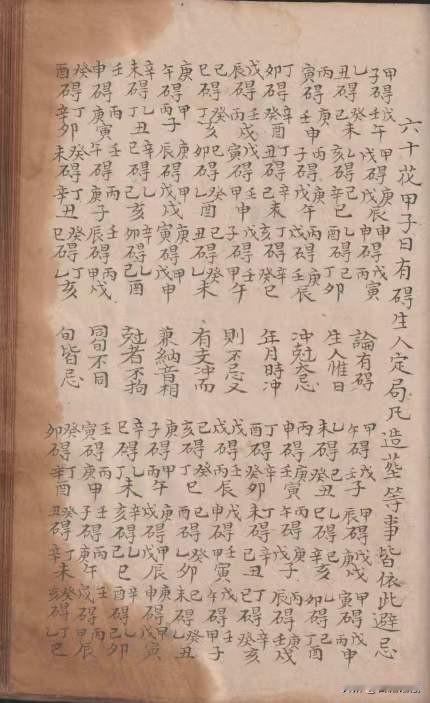 六十花甲子日有碍生人定局凡造塟等事皆依此避忌
甲子碍戊壬午甲戌碍戊庚辰甲申碍戊丙寅
乙丑碍己癸未乙亥碍己辛巳乙酉碍己丁卯
丙寅碍庚壬申丙子碍庚戊午丙戌碍庚壬辰
丁卯碍辛癸酉丁丑碍辛己未丁亥碍辛癸巳
戊辰碍壬丙戌戊寅碍壬甲申戊子碍壬甲午
己巳碍癸丁亥己卯碍癸乙酉己丑碍癸乙未
庚午碍甲丙子庚辰碍甲戊戌庚寅碍甲戊申
辛未碍乙丁丑辛巳碍乙己亥辛卯碍乙己酉
壬申碍丙庚寅壬午碍丙庚子壬辰碍丙甲戌
癸酉碍丁辛卯癸未碍丁辛丑癸巳碍丁乙亥
論有碍
生人惟日
冲尅大忌
年月時冲
則不忌又
有支冲而
兼納音相
尅者不拘
同旬不同
旬皆忌
甲午碍戊壬子甲辰碍戊庚戌甲寅碍戊丙申
乙未碍己癸丑乙巳碍己辛亥乙卯碍己丁酉
丙申碍庚壬寅丙午碍庚戊子丙辰碍庚壬戌
丁酉碍辛癸卯丁未碍辛己丑丁巳碍辛癸亥
戊戌碍壬丙辰戊申碍壬甲寅戊午碍壬甲子
己亥碍癸丁巳己酉碍癸乙卯己未碍癸乙丑
庚子碍甲丙午庚戌碍甲戊辰庚申碍甲戊寅
辛丑碍乙丁未辛亥碍乙己巳辛酉碍乙己卯
壬寅碍丙庚申壬子碍丙庚午壬戌碍丙甲辰
癸卯碍丁辛酉癸丑碍丁辛未癸亥碍丁乙巳